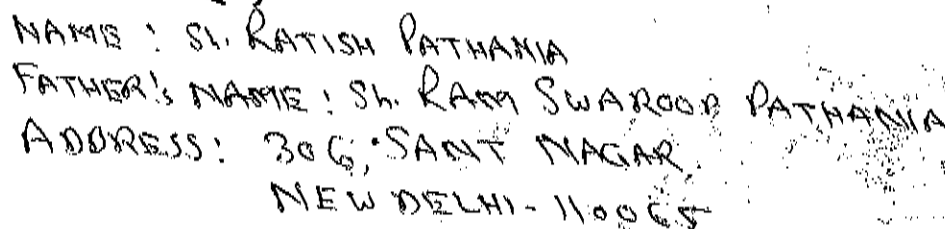 NAME : Sh. RATISH PATHANIA
FATHER'S NAME : Sh. RAM SWAROOP PATHANIA
ADDRESS: 306, SANT NAGAR,
NEW DELHI - 110065